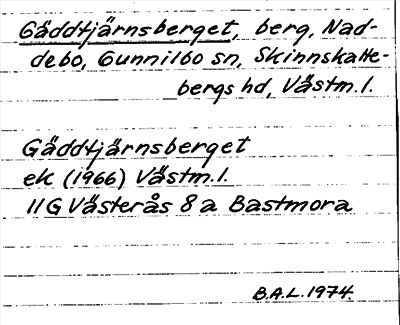 Gäddtjärnsberget, berg, Nad-
debo, Gunnilbo sn, Skinnskatte-
bergs hd, Västm.l.
Gäddtjärnsberget
ek (1966) Västm.l.
11G Västerås 8a Bastmora
B.A.L. 1974.